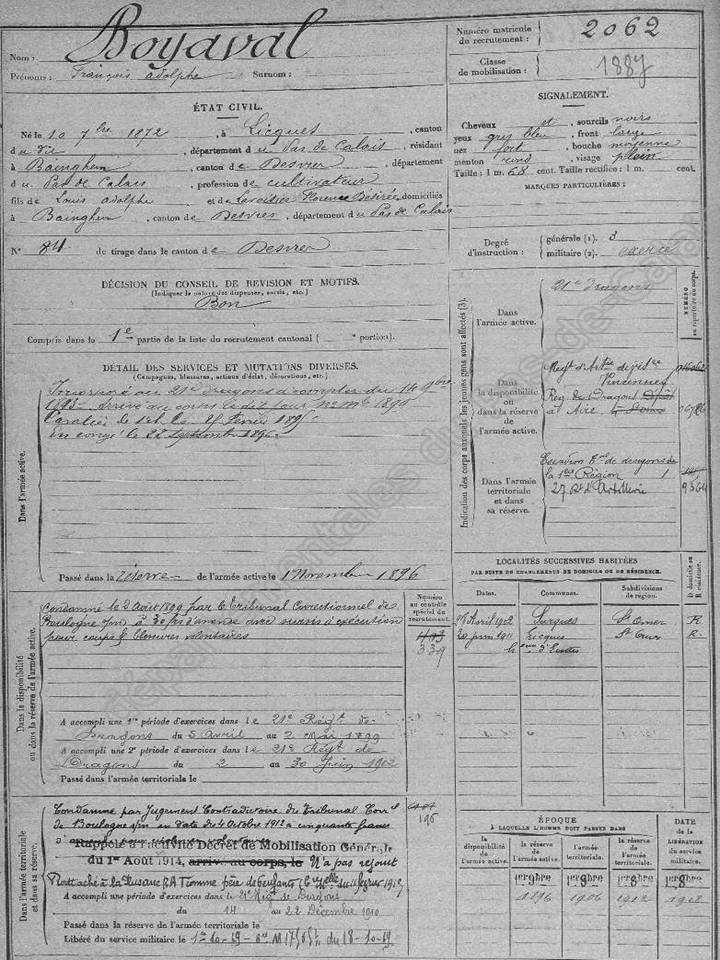 Nom : Boyaval
Prénoms : François Adolphe Surnom :
Numéro matricule du recrutement : 2062
Classe de mobilisation : 1887
ÉTAT CIVIL.
Né le 10 7bre 1872, à Licques, canton
du dit, département du Pas de Calais, résidant
à Bainghen, canton de Desvres, département
du Pas de Calais, profession de cultivateur
fils de Louis Adolphe et de Florence Désirée, domiciliés
à Bainghen, canton de Desvres, département du Pas de Calais
N° 84 de tirage dans le canton de Desvres
SIGNALEMENT.
Cheveux et sourcils noirs
yeux gris bleu, front large
nez fort, bouche moyenne
menton rond, visage plein
Taille : 1 m. 68 cent. Taille rectifiée : 1 m. cent.
MARQUES PARTICULIÈRES :
Degré d'instruction : générale (1). 3
militaire (2). exercé
DÉCISION DU CONSEIL DE REVISION ET MOTIFS.
(Indiquer la nature des dispenses, sursis, etc.)
Bon
Compris dans la 1e partie de la liste du recrutement cantonal ( e portion).
DÉTAIL DES SERVICES ET MUTATIONS DIVERSES.
(Campagnes, blessures, actions d'éclat, décorations, etc.)
Dans l'armée active.
Incorporé au 21e dragons à compter du 14 9bre
1893 arrivé au corps le dit jour
Cavalier de 1e cl. le février 1895
En congé le 22 septembre 1896
Passé dans la réserve de l'armée active le 1 Novembre 1896
Indication des corps auxquels les jeunes gens sont affectés (3).
NUMÉRO au répertoire du corps.
Dans l'armée active.
21e dragons
Dans la disponibilité ou dans la réserve de l'armée active.
Vincennes
Rég. de Dragons Dépôt
à Aire
Dans l'armée territoriale et dans sa réserve.
Escadron Trial de dragons de
la 1ère Région
27 Rt d'Artillerie
LOCALITÉS SUCCESSIVES HABITÉES
PAR SUITE DE CHANGEMENTS DE DOMICILE OU DE RÉSIDENCE.
Dates. Communes. Subdivisions de région. D domicile ou R résidence.
Avril 1902 Surques St Omer R
20 juin 1911 Licques St Omer R.
Dans la disponibilité ou dans la réserve de l'armée active.
Numéro au contrôle spécial du recrutement.
Condamné le 2 Août 1899 par le Tribunal Correctionnel de
Boulogne s/m à 30 f d'amende avec sursis à exécution
pour coups & blessures volontaires
339
A accompli une 1re période d'exercices dans le 21e Régt de
Dragons du 5 avril au 2 Mai 1899
A accompli une 2e période d'exercices dans le 21e Régt de
Dragons du 2 au 30 Juin 1902
Passé dans l'armée territoriale le
Dans l'armée territoriale et dans sa réserve.
Condamné par Jugement Contradictoire du Tribunal Correl
de Boulogne s/m en date du 4 Octobre 1912 à cinquante francs
196
Rappelé à l'activité Décret de Mobilisation Générale
du 1er Août 1914, arrivé au corps, le N'a pas rejoint
Rattaché à la classe père de 6 enfants
A accompli une période d'exercices dans le 21e Régt de Dragons
du 14 au 22 Décembre 1910
Passé dans la réserve de l'armée territoriale le
Libéré du service militaire le 1er 10-19 du 18-10-19
ÉPOQUE
À LAQUELLE L'HOMME DOIT PASSER DANS
la disponibilité de l'armée active. la réserve de l'armée active. l'armée territoriale. la réserve de l'armée territoriale. DATE de la LIBÉRATION du service militaire.
1er 9bre 1er 9bre 1er 9bre 1er 8bre
1896 1906 1912 1918